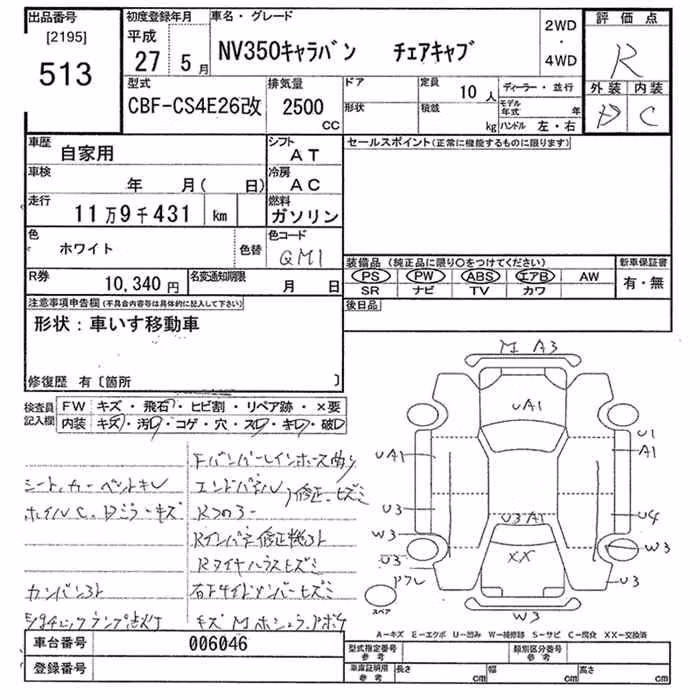 出品番号
[2195]
513
初度登録年月
平成
27 5月
車名・グレード
NV350キャラバン チェアキャブ
2WD
・
4WD
評価点
R
外装 内装
D C
型式
CBF-CS4E26改
排気量
2500
CC
ドア
形状
定員
10人
積載
kg
ディーラー・並行
モデル年式 年
ハンドル 左・右
車歴
自家用
シフト
AT
車検
年 月( 日)
冷房
AC
走行
11万9千431 km
燃料
ガソリン
色
ホワイト
色替
色コード
QM1
R券
10,340円
名変通知期限
月 日
セールスポイント(正常に機能するものに限ります)
装備品 (純正品に限り○をつけてください)
PS PW ABS エアB AW
SR ナビ TV カワ
新車保証書
有・無
後日品
注意事項申告欄(不具合内容等は具体的に記入して下さい)
形状:車いす移動車
修復歴 有〔箇所 〕
検査員記入欄
FW キズ・飛石・ヒビ割・リペア跡・×要
内装 キズ・汚れ・コゲ・穴・スレ・キレ・破レ
Fバンパーレインホース曲り
シート、カーペットキレ
エンドパネル
修正、ヒズミ
ホイルC、Dミラーキズ
Rフロアー
Rインパネ修正機外
Rタイヤハウスヒズミ
カンバン外
右Fサイドメンバーヒズミ
M A3
UA1
UA1
U1
A1
U3
U4
U3A1
W3
W3
U3
XX
U3
W3
スペア
A-キズ E-エクボ U-凹み W-補修跡 S-サビ C-腐食 XX-交換済
車台番号
006046
登録番号
型式指定番号
参考
類別区分番号
参考
車庫証明用
参考
長さ cm
幅 cm
高さ cm